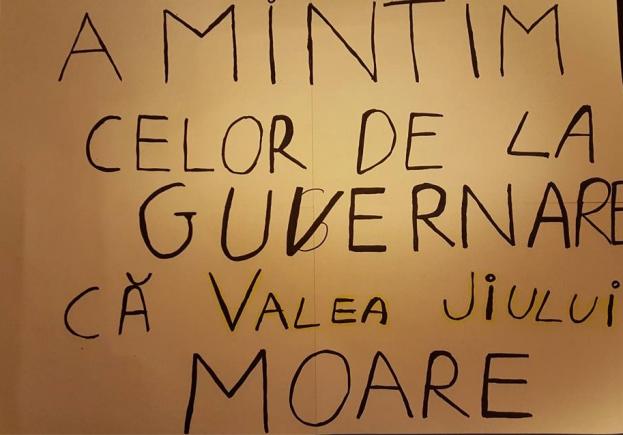 A MINTIM
CELOR DE LA
GUVERNARE
CĂ VALEA JIULUI
MOARE